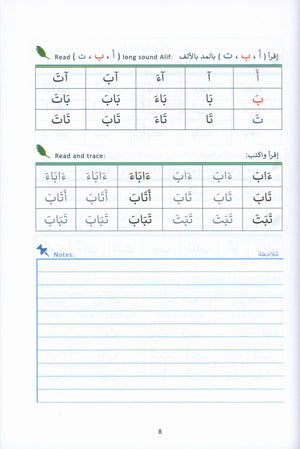 Read ( أ ، ب ، ت ) long sound Alif: إقرأ ( أ ، ب ، ت ) بالمد بالألف
أَ آ آءَ آبَ آتَ
بَ بَا بَاءَ بَابَ بَاتَ
تَ تَا تَاءَ تَابَ تَاتَ
Read and trace: إقرأ واكتب:
ءَابَ ءَابَ ءَابَ ءَابَاءَ ءَابَاءَ ءَابَاءَ
تَابَ تَابَ تَابَ أَتَابَ أَتَابَ أَتَابَ
تَبَتَ تَبَتَ تَبَتَ تَبَابَ تَبَابَ تَبَابَ
Notes: مُلَاحَظَة
8